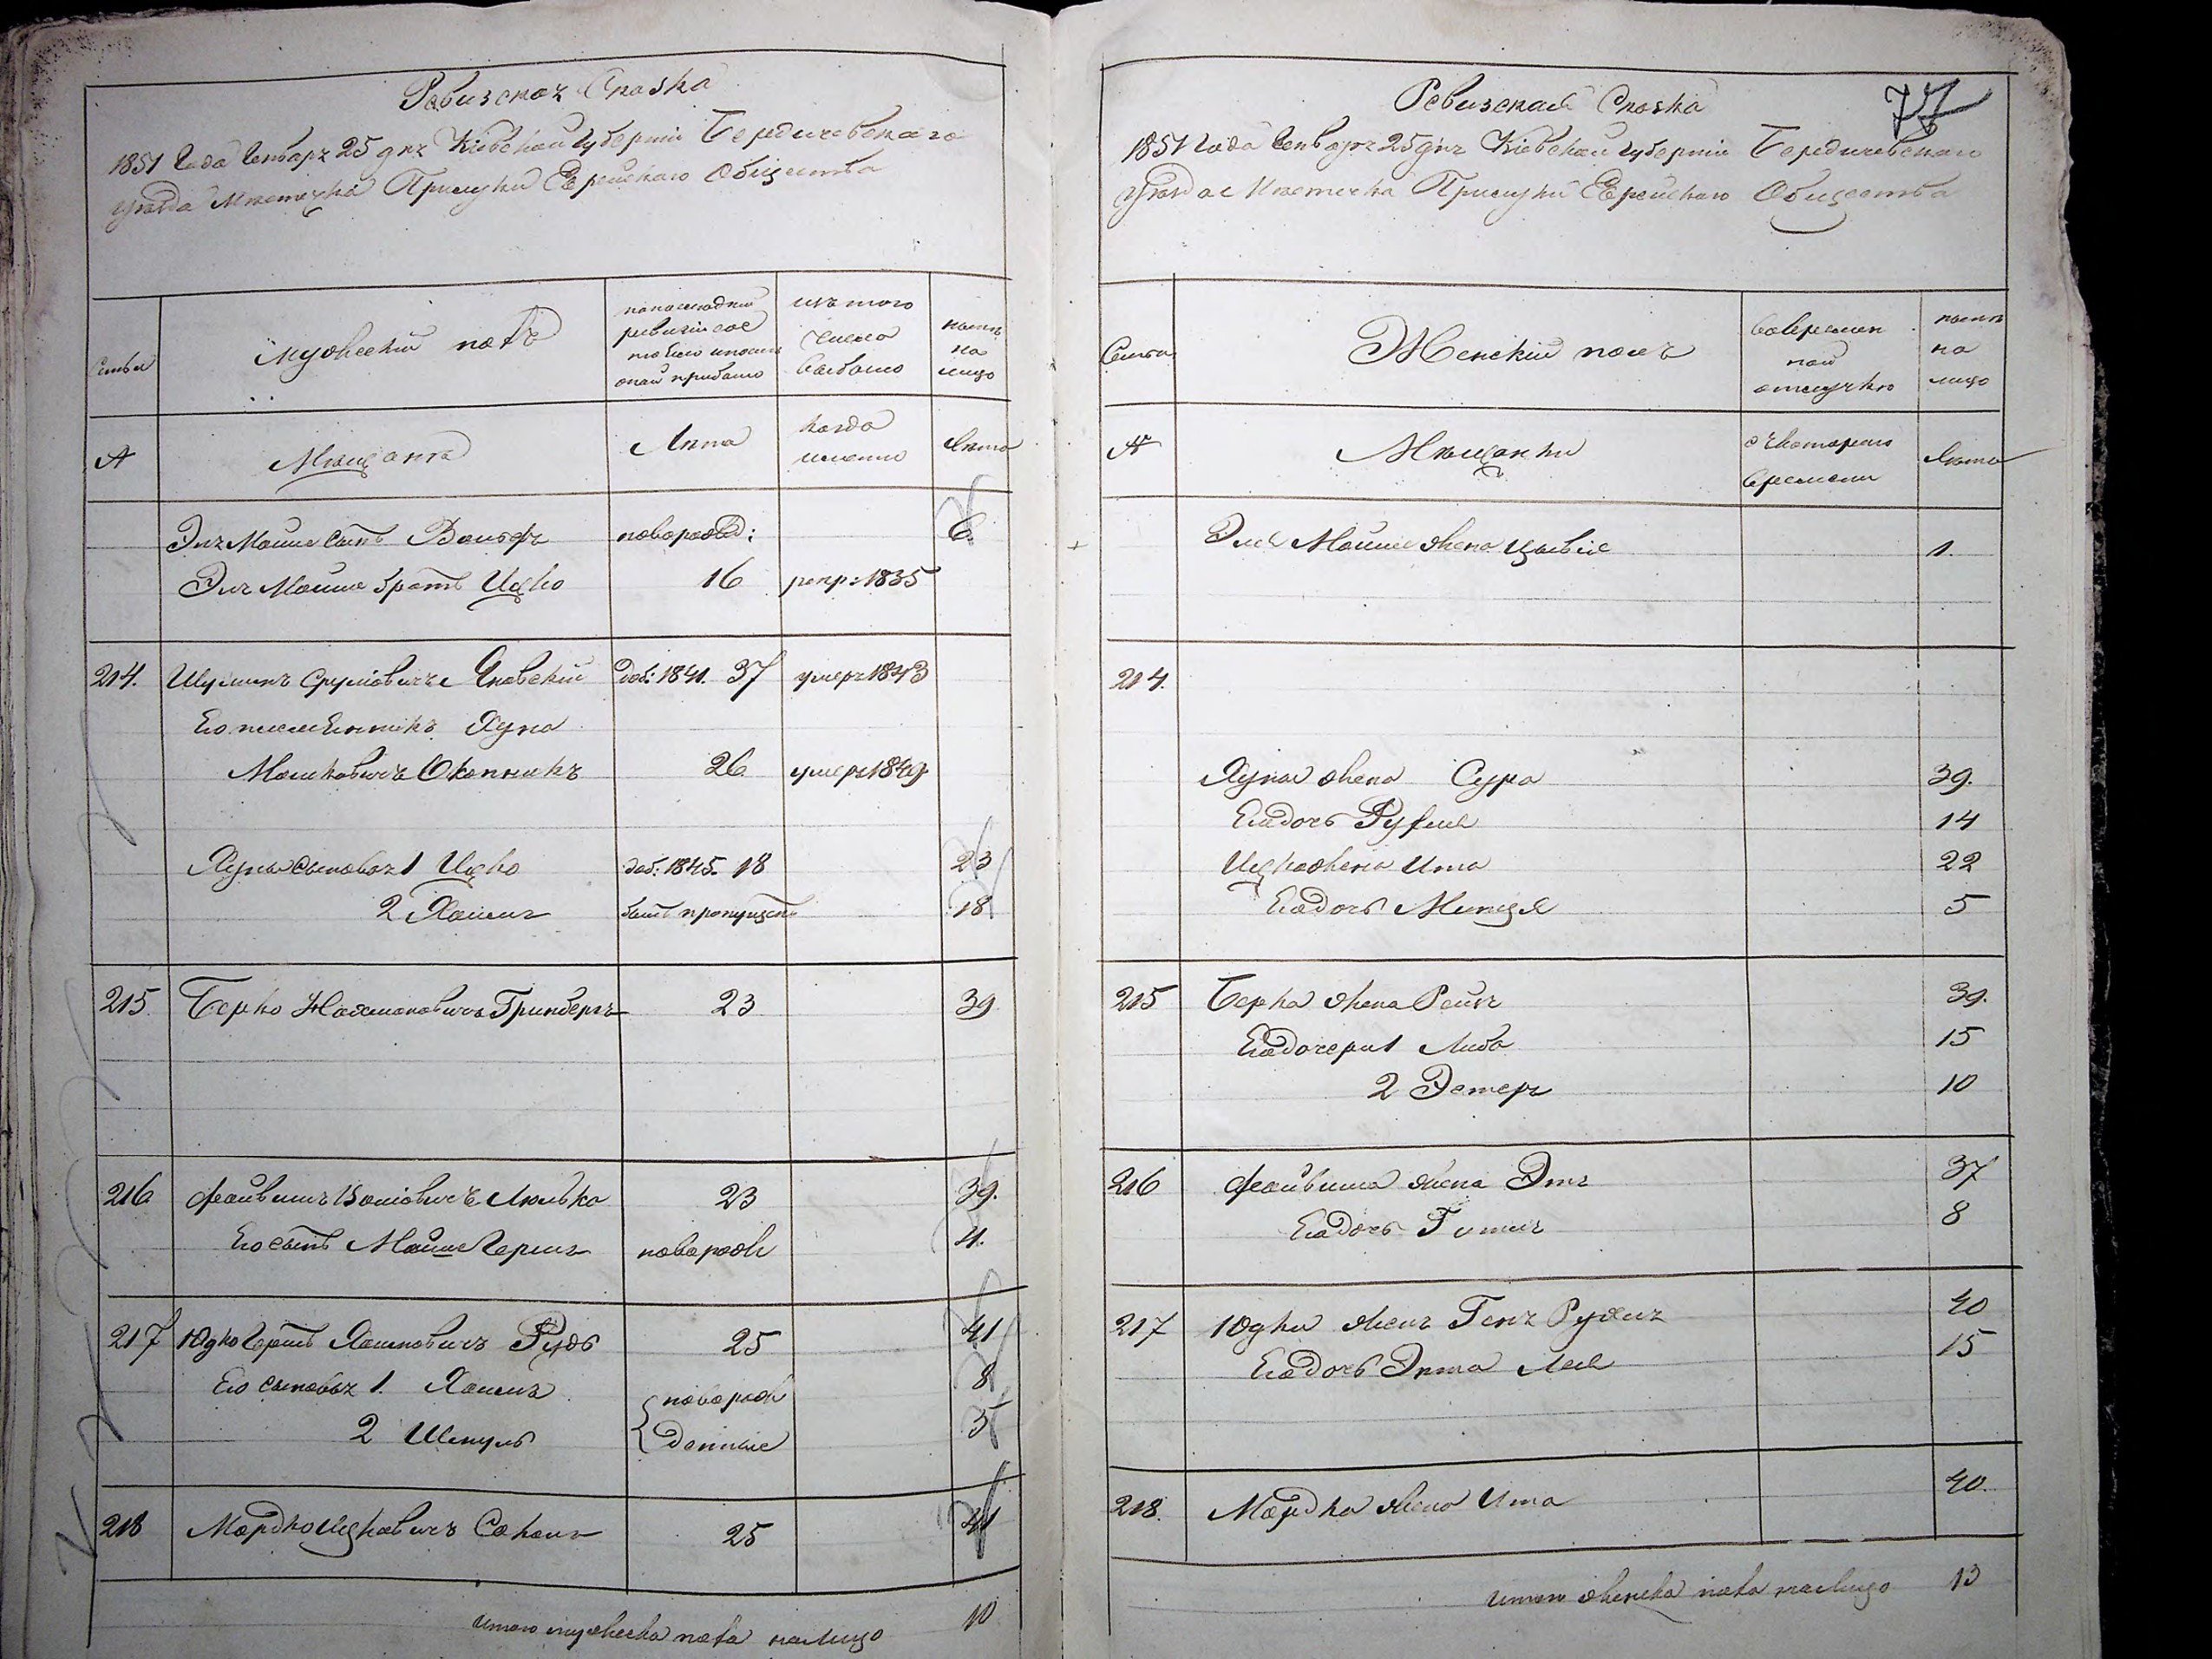 Ревизская Сказка
1851 Года Генваря 25 дня Киевской Губернии Бердичевскаго
уезда Местечка Прилуки Еврейскаго Общества
Семьи
Мужеский полъ
по последней
ревизии сос
тояло и после
оной прибыло
изъ того
числа
выбыло
ныне
на
лицо
№
Мещане
Лета
когда
именно
Лета
Эля Мошко сынъ Вольфъ новорожд: 6
Эля Мошко братъ Ицко 16 рекр: 1835
214. Шулимъ Сруліовичъ Яновскій доб: 1841. 37 умеръ 1843
Его племянникъ Хуна
Мошковичъ Окопникъ 26 умеръ 1849
Хуны сыновья 1 Ицко доб: 1845. 18 23
2 Хаимъ былъ пропущенъ 18
215 Берко Нахмановичъ Гринбергъ 23 39
216 Файвишъ Волiовичъ Люлька 23 39.
Его сынъ Мойше Гершъ новорожд 4.
217 Юдко Гершъ Хаимовичъ Рудь 25 41
Его сыновья 1. Хаимъ новорож 8
2 Шмуль денные 5
218 Мордко Ицковичъ Сокалъ 25 41
итого мужеска пола на лицо 10
Ревизская Сказка
77
1851 Года Генваря 25 дня Киевской Губернии Бердичевскаго
Уезда Местечка Прилуки Еврейскаго Общества
Семьи
Женскій полъ
во времен
ной
отлучке
ныне
на
лицо
№
Мещанки
съ котораго
времени
Лета
Эля Мошко жена Цывіе 1.
214.
Хуны жена Сура 39.
Ея дочь Рухля 14
Ицка жена Ита 22
Его дочь Минця 5
215 Берка жена Рейзя 39.
Его дочери 1 Либа 15
2 Эстеръ 10
216 Файвиша жена Этя 37
Его дочь Гитля 8
217 Юдки жена Геня Рухля 40
Его дочь Энта Лея 15
218. Мордка жена Ита 40.
итого женска пола на лицо 13